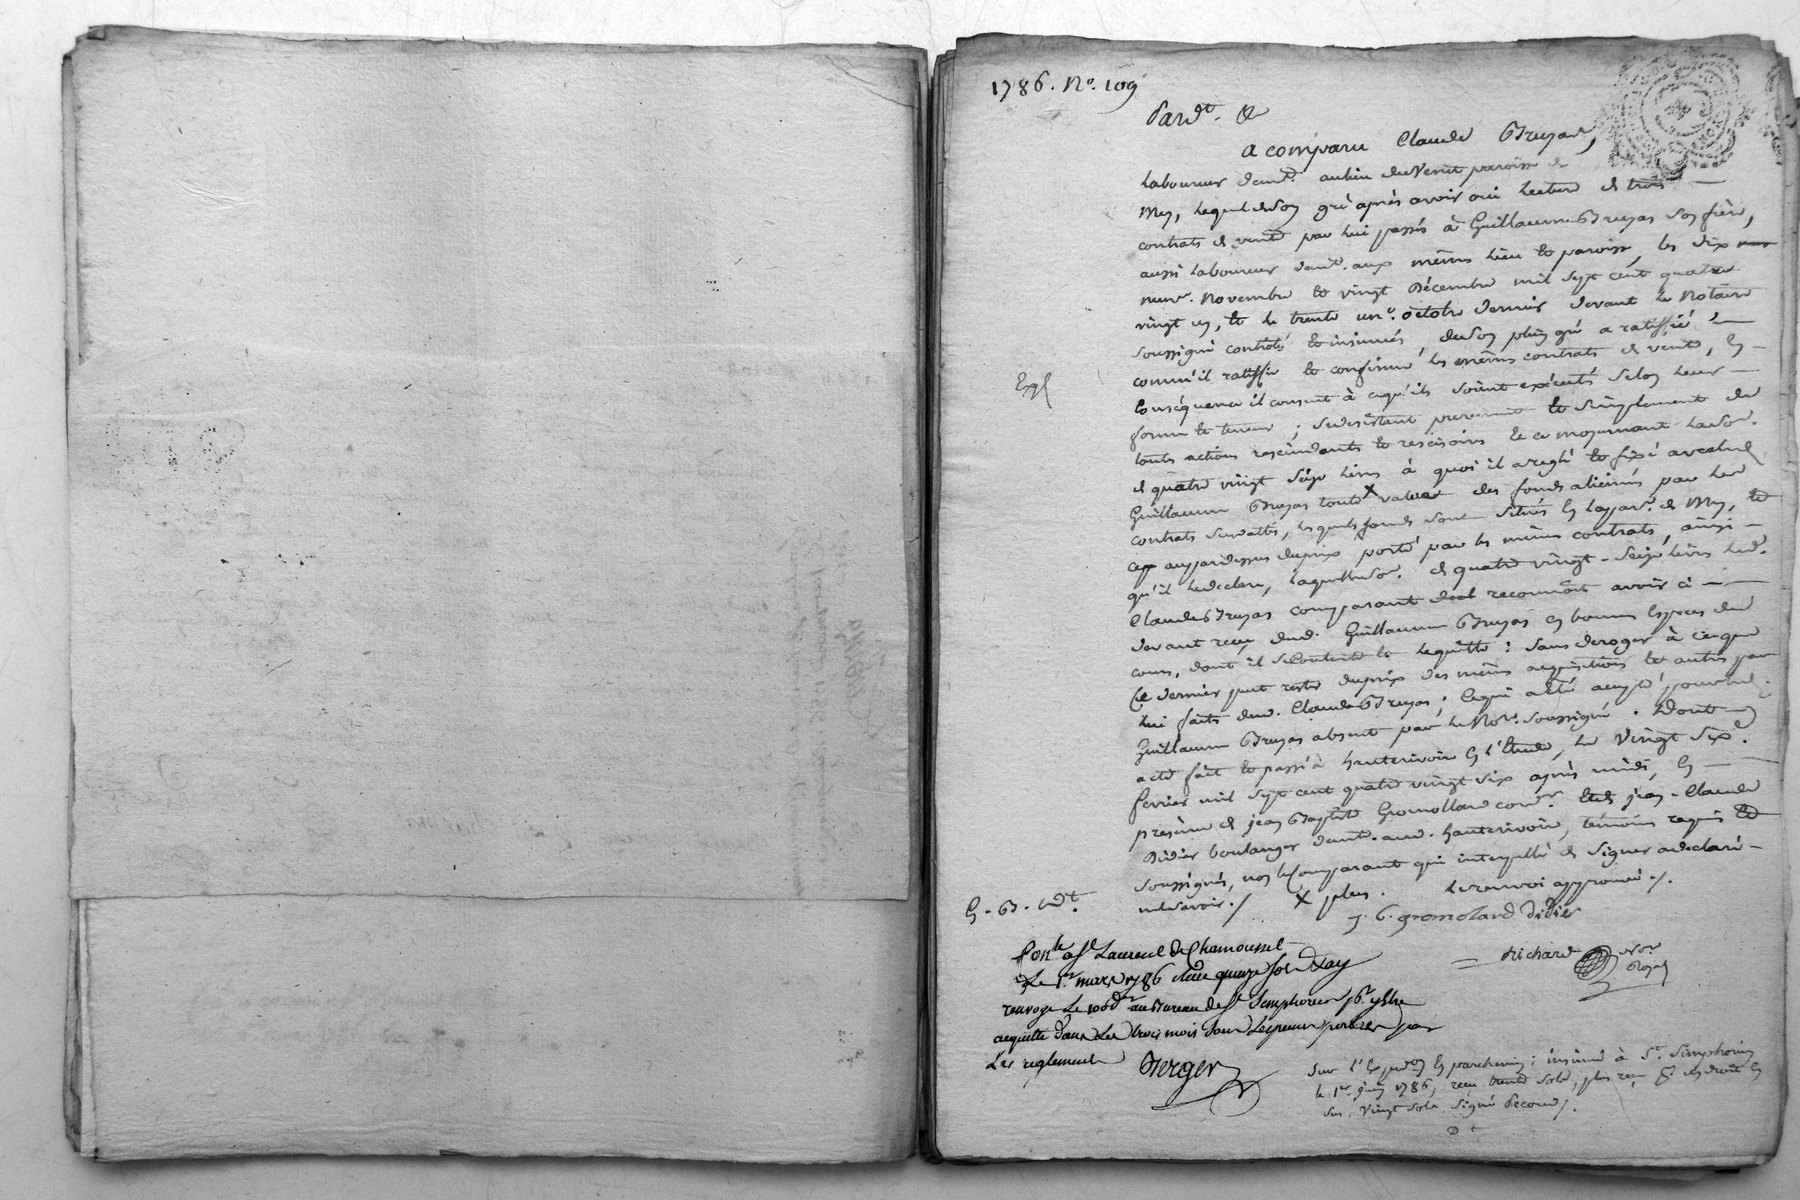 1786. N°. 109
Pard.t &
a comparu Claude Bruyas,
Laboureur demt. au lieu du Venet paroisse de
Mys, lequel de son gré après avoir oui lecture de trois
contrats de vente par lui passés à Guillaume Bruyas son frère,
aussi Laboureur demt. aux mêmes lieu et paroisse, les dix
neuf. Novembre et vingt Décembre mil sept cent quatre
vingt un, et le trente un.e octobre dernier devant le Notaire
soussigné contrôlés et insinués, de son plein gré a ratiffié
comm'il ratiffie et confirme les mêmes contrats de vente, en
conséquence il consent à ce qu'ils soient exécutés selon leur
Expl
forme et teneur ; se desistant purement et simplement de
toutes actions rescindants et rescisoirs et ce moyennant la so.
de quatre vingt seize livres à quoi il a reglé et fixé avec led.
Guillaume Bruyas toute X valeur des fonds aliénés par les
contrats susdattés, lesquels fonds sont situés en lad. par. de Mys, et
ce au pardessus du prix porté par les mêmes contrats, ainsi
qu'il le declare, laquelle so. de quatre vingt-seize livres led.
Claude Bruyas comparant reconnoît avoir ci
devant reçu dud. Guillaume Bruyas en bonnes Especes de
cours, dont il se contente et le quitte ; sans deroger à ce que
ce dernier peut rester du prix des mêmes acquisitions et autres par
lui faits dud. Claude Bruyas ; ce qui a été accepté pour led.
Guillaume Bruyas absent par le No.re soussigné. Dont
acte fait et passé à hauterivoire en l'Etude, le vingt six.
fevrier mil sept cent quatre vingt six après midi, en
presence de jean Baptiste Gromollard cord.r et de jean-Claude
Didier boulanger demt. aud. hauterivoire, témoins requis et
soussignés, non le comparant qui interpellé de signer a declaré
ne le savoir ./ X plus . le renvoi approuvé ./.
G. B. Cdt.
j. b. gromolard didier
Richard Nore Royal
Con.lé a St Laurent de Chamousset
Le 1.er mars 1786 Reçu quinze sols
renvoyé Le 100e d.r au Bureau de St Simphorien pr. y être
acquitté dans Les trois mois sous Les peines portées par
Les reglements Berger
Sur l'Ex. en parchemin : insinué à St. Simphorien
le 1er. juin 1786, reçu trente sols, plus reçu de droit en
sus. vingt sols signé Decour ./.